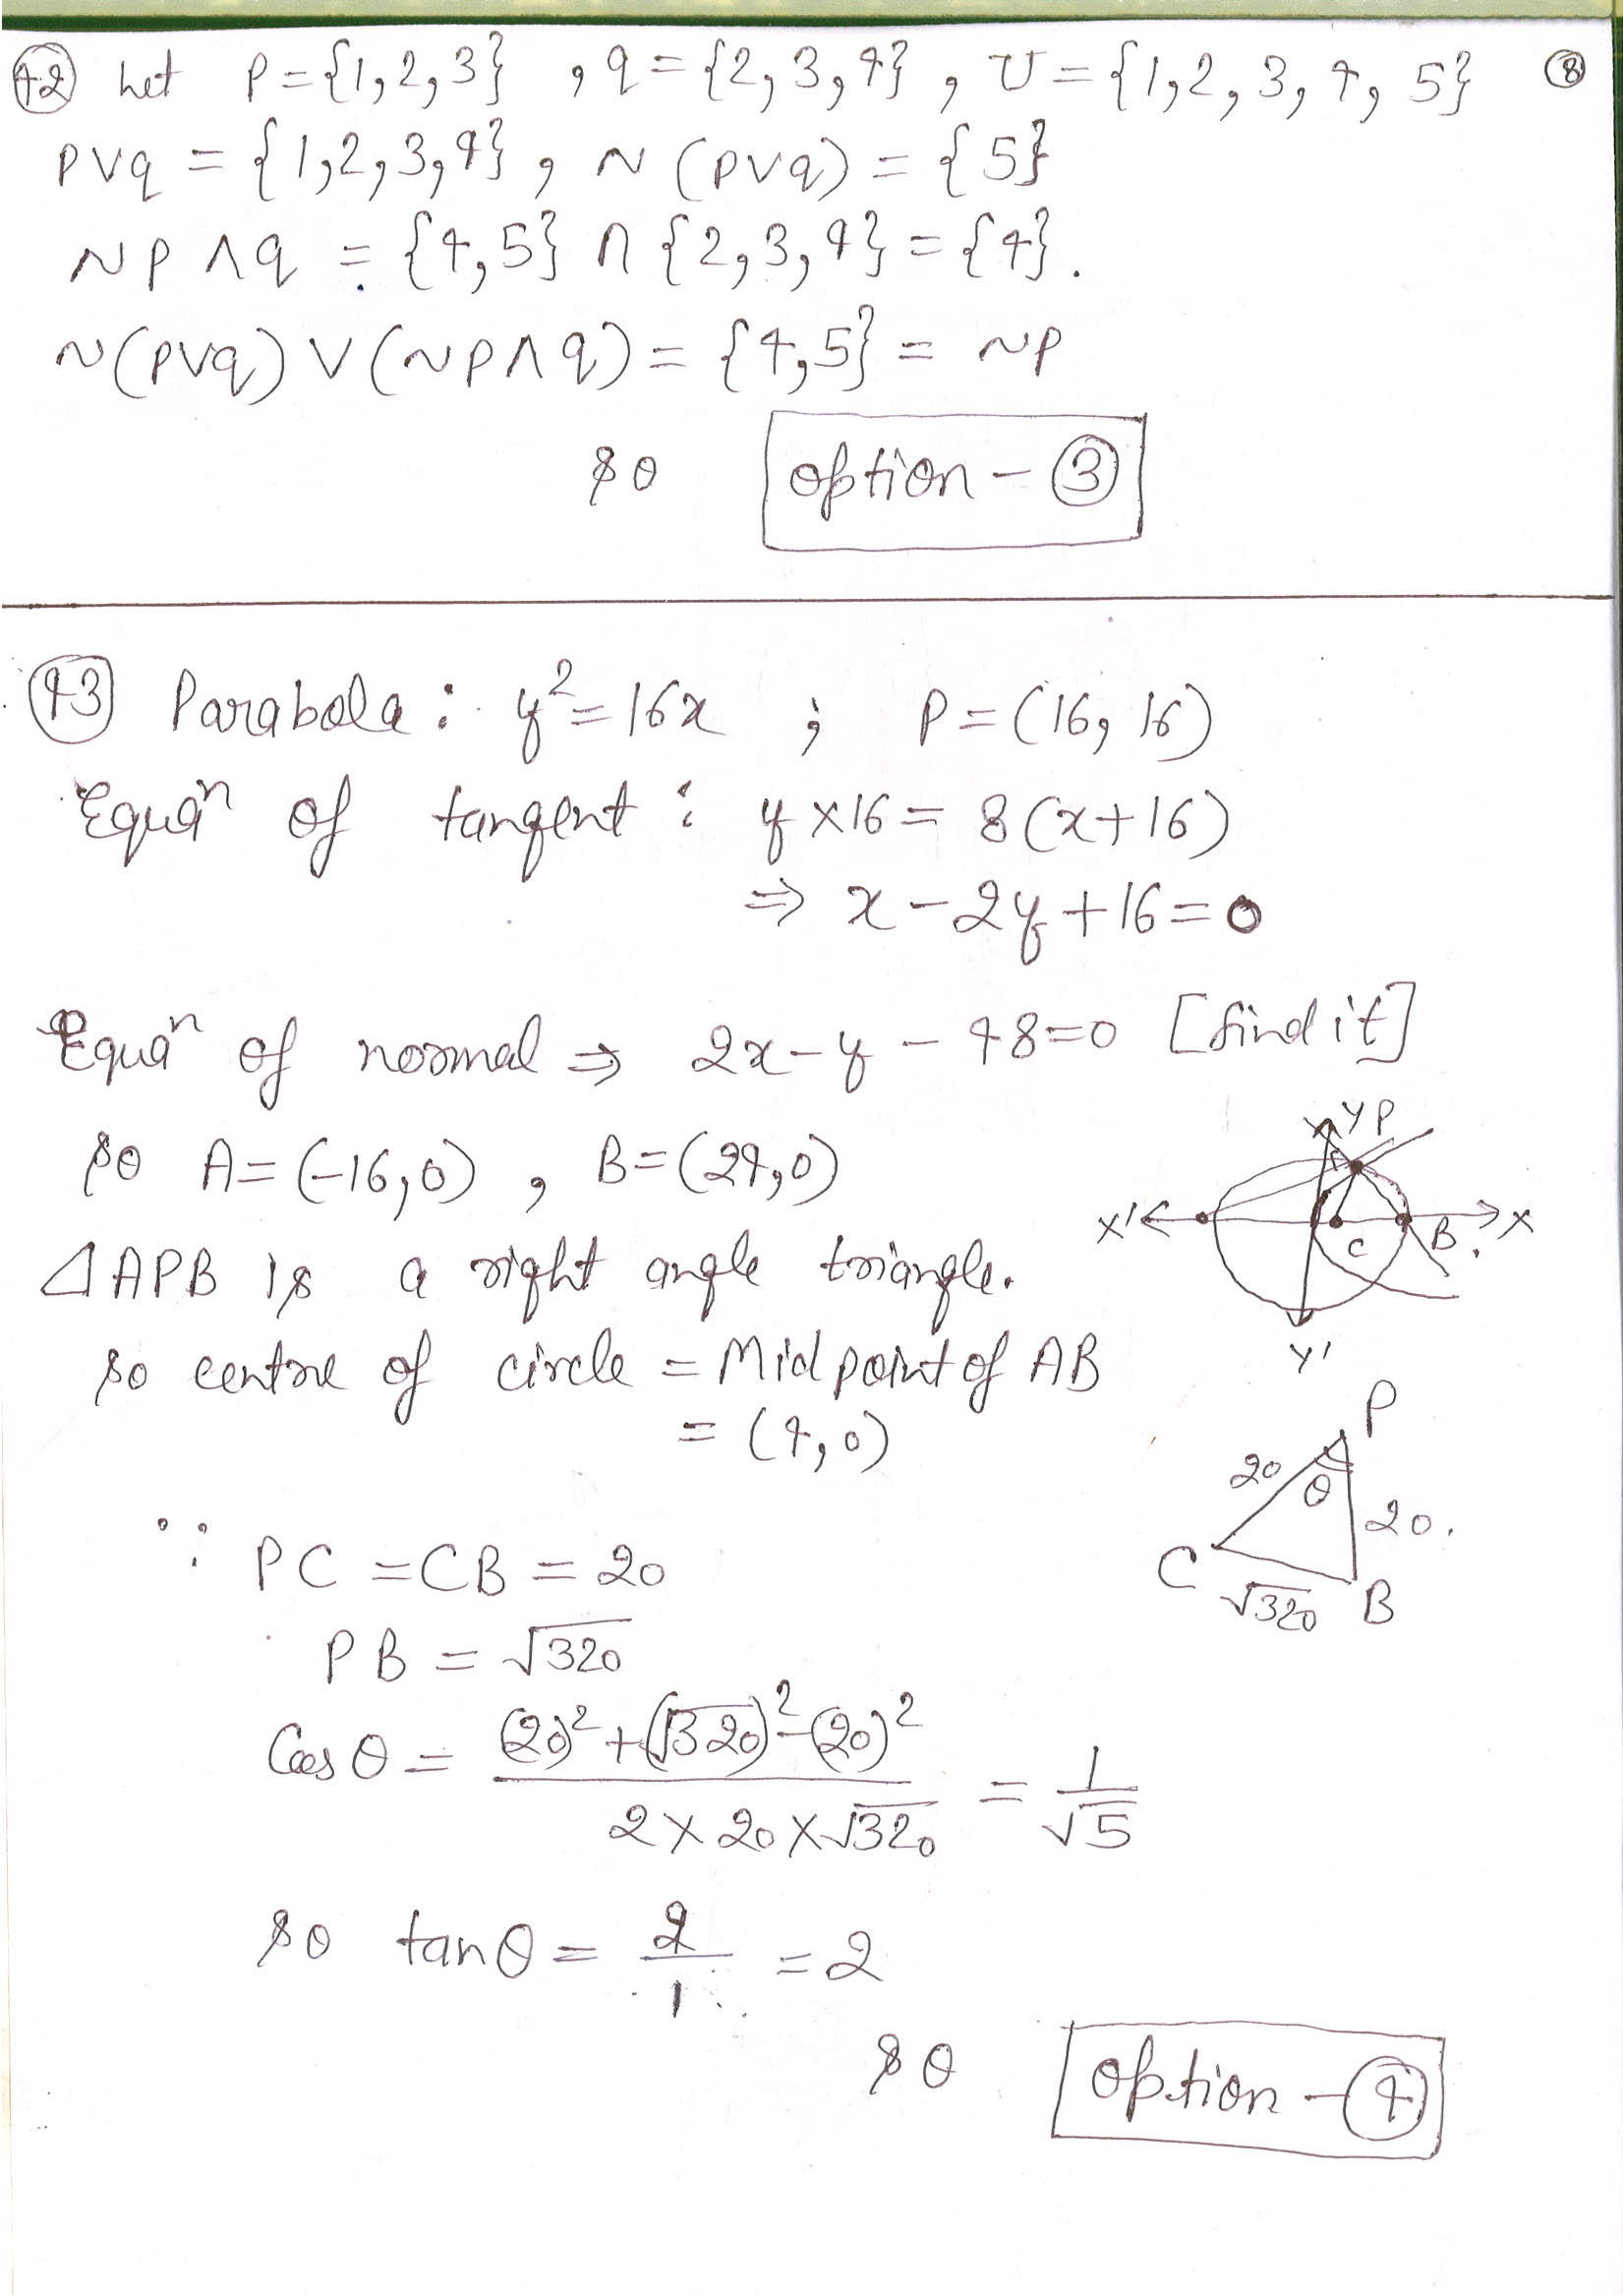 42 Let P={1,2,3} , q={2,3,4} , U={1,2,3,4,5} 8
p∨q = {1,2,3,4} , ~(p∨q) = {5}
~p∧q = {4,5} ∩ {2,3,4} = {4}.
~(p∨q) ∨ (~p∧q) = {4,5} = ~p
so option - 3
43 Parabola : y²=16x ; P=(16, 16)
Equaⁿ of tangent : y×16 = 8(x+16)
⇒ x-2y+16=0
Equaⁿ of normal ⇒ 2x-y-48=0 [find it]
so A=(-16,0) , B=(24,0)
△APB is a right angle triangle.
so centre of circle = Mid point of AB
= (4,0)
Y P
X' C B X
Y'
∵ PC = CB = 20
PB = √320
P
20 θ 20.
C √320 B
Cos θ = (20)²+(√320)²-(20)² / 2×20×√320 = 1/√5
so tanθ = 2/1 = 2
so option - 4